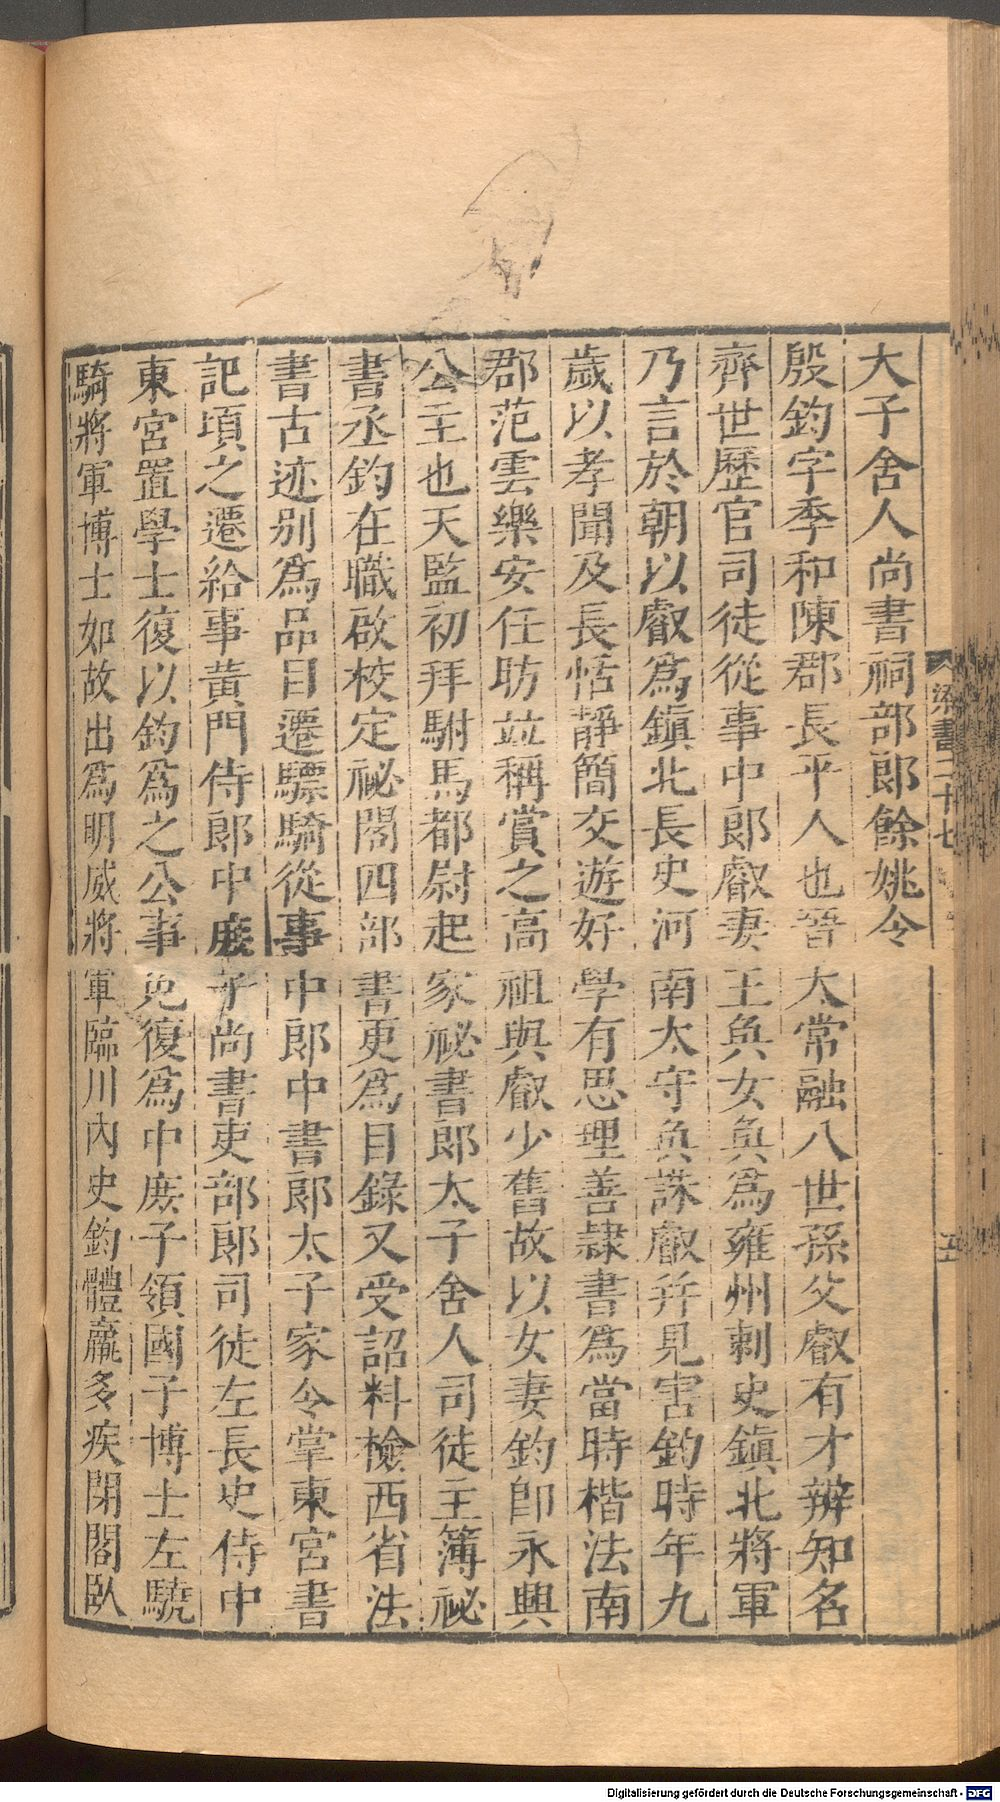 大子舍人尚書祠部郎餘姚令
殷鈞字季和陳郡長平人也晉太常融八世孫父叡有才辨知名
齊世歷官司徒從事中郎叡妻王奐女奐爲雍州剌史鎮北將軍
乃言於朝以叡爲鎮北長史河南太守奐誅叡并見害鈞時年九
歲以孝聞及長恬靜簡交遊好學有思理善隷書爲當時楷法南
郡范雲樂安任昉竝稱賞之高祖與叡少舊故以女妻鈞卽永興
公主也天監初拜駙馬都尉起家祕書郎太子舍人司徒主簿祕
書丞鈞在職啟校定祕閣四部書更爲目錄又受詔料檢西省法
書古迹别爲品目遷驃騎從事中郎中書郎太子家令掌東宮書
記頃之遷給事黃門侍郎中庶子尚書吏部郎司徒左長史侍中
東宮置學士復以鈞爲之公事免復爲中庶子領國子博士左驍
騎將軍博士如故出爲明威將軍臨川內史鈞體羸多疾閉閣臥
梁書二十七
五
Digitalisierung gefördert durch die Deutsche Forschungsgemeinschaft - DFG